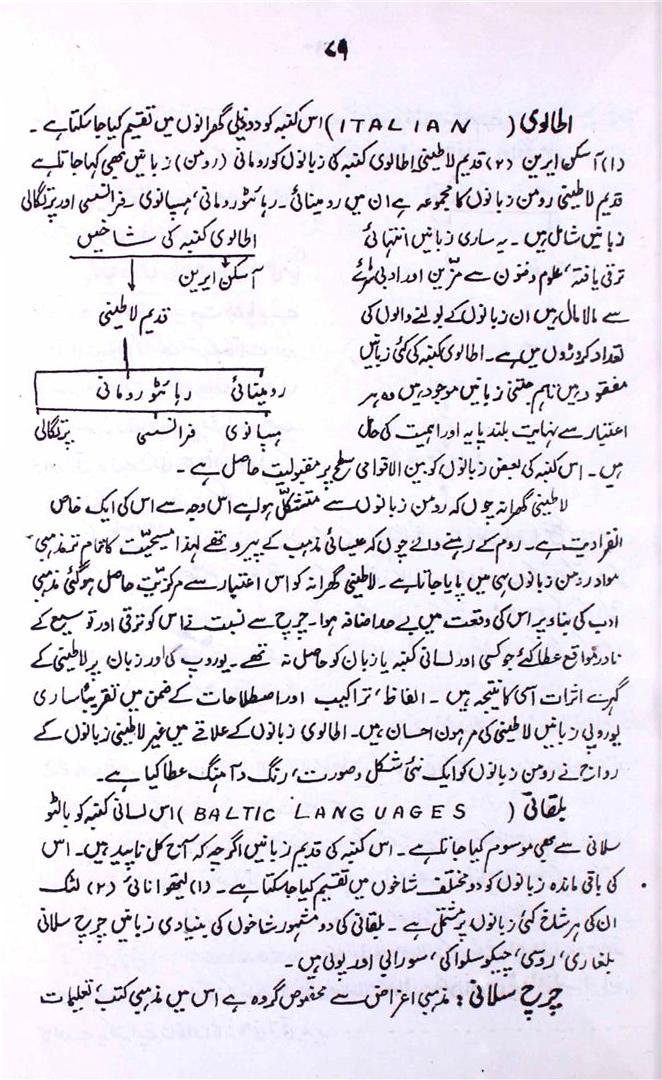 ۸۹
اطالوی (ITALIAN) اس کنبہ کو دو ذیلی گھرانوں میں تقسیم کیا جا سکتا ہے۔
(۱) آسکن ایرین (۲) قدیم لاطینی اطالوی کنبہ کی زبانوں کو رومانی (رومن) زبانیں بھی کہا جاتا ہے
قدیم لاطینی رومن زبانوں کا مجموعہ ہے ان میں رومیتائی۔ رہائٹو رومانی، ہسپانوی، فرانسیسی اور پرتگالی
زبانیں شامل ہیں۔ یہ ساری زبانیں انتہائی
ترقی یافتہ، علوم و فنون سے مزین اور ادبی
سے مالا مال ہیں ان زبانوں کے بولنے والوں کی
تعداد کروڑوں میں ہے۔ اطالوی کنبہ کی کئی زبانیں
مفقود ہیں تاہم جتنی زبانیں موجود ہیں وہ ہر
اعتبار سے نہایت بلند پایہ اور اہمیت کی حامل
اطالوی کنبہ کی شاخیں
آسکن ایرین
قدیم لاطینی
رومیتائی رہائٹو رومانی
ہسپانوی فرانسیسی پرتگالی
ہیں۔ اس کنبہ کی بعض زبانوں کو بین الاقوامی سطح پر مقبولیت حاصل ہے۔
لاطینی گھرانہ چوں کہ رومن زبانوں سے متشکل ہوا ہے اس وجہ سے اس کی ایک خاص
انفرادیت ہے۔ روم کے رہنے والے چوں کہ عیسائی مذہب کے پیرو تھے لہذا مسیحیت کا تمام تر مذہبی
مواد رومن زبانوں ہی میں پایا جاتا ہے۔ لاطینی گھرانہ کو اس اعتبار سے مرکزیت حاصل ہو گئی مذہبی
ادب کی بناء پر اس کی وقعت میں بے حد اضافہ ہوا۔ چرچ سے نسبت نے اس کو ترقی اور توسیع کے
نادر مواقع عطا کئے جو کسی اور لسانی کنبہ یا زبان کو حاصل نہ تھے۔ یوروپ کی اور زبان پر لاطینی کے
گہرے اثرات اسی کا نتیجہ ہیں۔ الفاظ، تراکیب اور اصطلاحات کے ضمن میں تقریباً ساری
یوروپی زبانیں لاطینی کی مرہون احسان ہیں۔ اطالوی زبانوں کے علاقے میں غیر لاطینی زبانوں کے
رواج نے رومن زبانوں کو ایک نئی شکل و صورت، رنگ و آہنگ عطا کیا ہے۔
بلقانی (BALTIC LANGUAGES) اس لسانی کنبہ کو بالٹو
سلانی سے بھی موسوم کیا جاتا ہے۔ اس کنبہ کی قدیم زبانیں اگرچہ کہ آج کل ناپید ہیں۔ اس
کی باقی ماندہ زبانوں کو دو مختلف شاخوں میں تقسیم کیا جا سکتا ہے۔ (۱) لیتھوانائی (۲) لٹک
ان کی ہر شاخ کئی زبانوں پر مشتمل ہے۔ بلقانی کی دو مشہور شاخوں کی بنیادی زبانیں چرچ سلانی
بلغاری، روسی، چیکوسلواکی، سورابی اور پولی ہیں۔
چرچ سلانی: مذہبی اغراض سے مخصوص گروہ ہے اس میں مذہبی کتب، تعلیمات